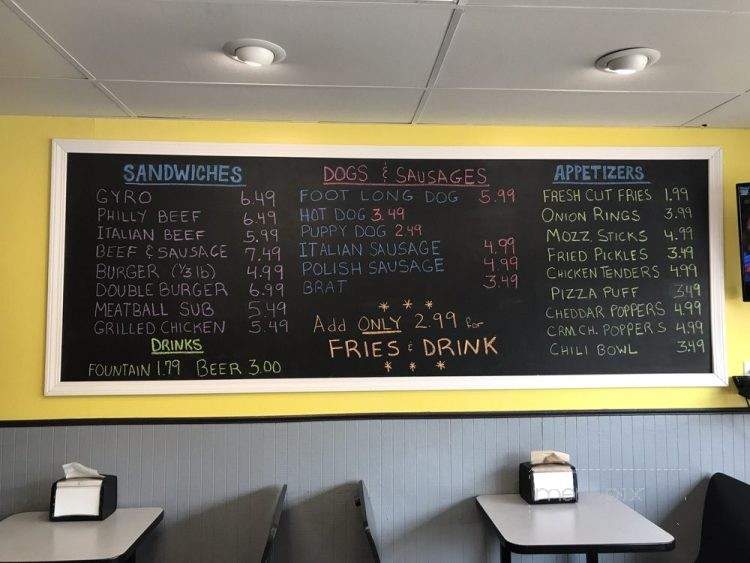 SANDWICHES
GYRO 6.49
PHILLY BEEF 6.49
ITALIAN BEEF 5.99
BEEF & SAUSAGE 7.49
BURGER (1/3 lb) 4.99
DOUBLE BURGER 6.99
MEATBALL SUB 5.49
GRILLED CHICKEN 5.49
DRINKS
FOUNTAIN 1.79 BEER 3.00
DOGS & SAUSAGES
FOOT LONG DOG 5.99
HOT DOG 3.49
PUPPY DOG 2.49
ITALIAN SAUSAGE 4.99
POLISH SAUSAGE 4.99
BRAT 3.49
* * *
Add ONLY 2.99 for
FRIES & DRINK
* * *
APPETIZERS
FRESH CUT FRIES 1.99
ONION RINGS 3.99
MOZZ STICKS 4.99
FRIED PICKLES 3.49
CHICKEN TENDERS 4.99
PIZZA PUFF 3.49
CHEDDAR POPPERS 4.99
CRM CH. POPPERS 4.99
CHILI BOWL 3.49
menupix